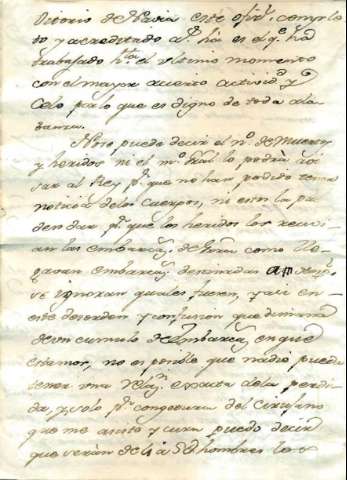 Vitorio de Navia este ofiz.l compl
to y acreditado a.l hai es el q.e há
trabajado h.ta el ultimo momento
con el mayor acierto activid.d y
Celo p.r lo que es digno de toda ala
banza.
No se puede decir el n.o de Muertos
y heridos ni el m.o Gral lo podrà
al Rey p.r que no han podido tomar
noticia de los Cuerpos, ni estos la pu
den dar p.r que los heridos los recivi
an las embarcaz.s de como
garan embarcaz.s destinadas
se ignoran quales fueron, y asi en
este desorden y confusion que dimana
de un cumulo de Embarcaz.s en que
estamos, no es posible que nadie pueda
tener una relaz.n exacta de la perdi
da, y solo p.r congetura del Cirujano
que me asiste y cura puedo decir
que seràn de 4 a 5 hombres los